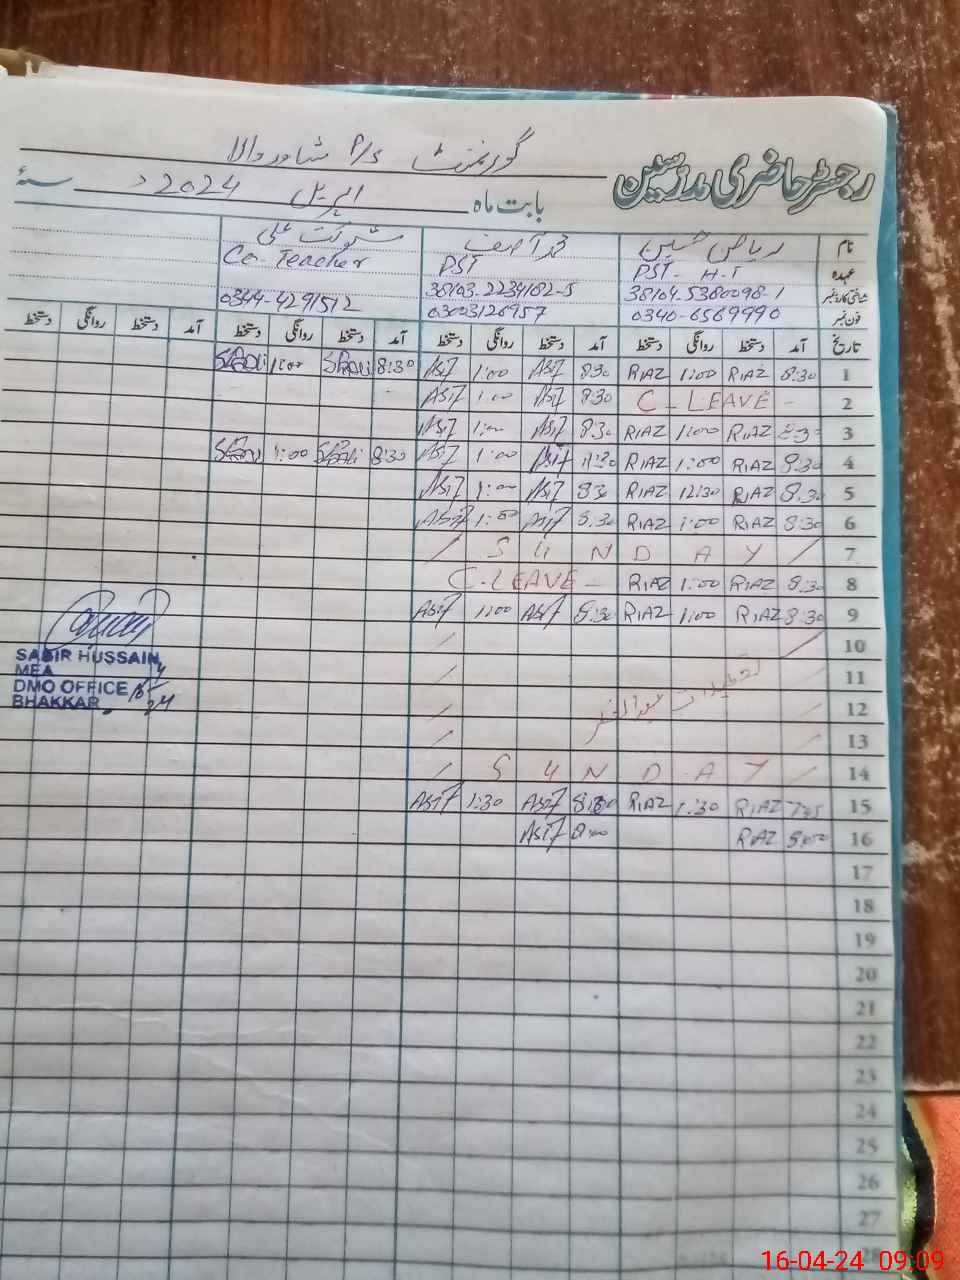 رجسٹر حاضری مدرسین گورنمنٹ P/S شاہ ور والا
بابت ماہ اپریل 2024ء سنۂ
نام ریاض حسین محمد آصف شوکت علی
عہدہ PST - H.T PST Co-Teacher
شناختی کارڈ نمبر 38104-5380098-1 38103-2234182-5
فون نمبر 0340-6569990 03003126957 0344-4291512
تاریخ آمد دستخط روانگی دستخط آمد دستخط روانگی دستخط آمد دستخط روانگی دستخط آمد دستخط روانگی دستخط
1 8:30 RIAZ 1:00 RIAZ 8:30 Asif 1:00 Asif 8:30 ShAli 1:00 ShAli
2 C-LEAVE - 8:30 Asif 1:00 Asif
3 8:30 RIAZ 1:00 RIAZ 8:30 Asif 1:00 Asif
4 8:30 RIAZ 1:00 RIAZ Asif 1:00 Asif 8:30 ShAli 1:00 ShAli
5 8:30 RIAZ 12:30 RIAZ 830 Asif 1:00 Asif
6 8:30 RIAZ 1:00 RIAZ 8:30 Asif 1:00 Asif
7 / S U N D A Y /
8 8:30 RIAZ 1:00 RIAZ C-LEAVE -
9 8:30 RIAZ 1:00 RIAZ 8:30 Asif 1:00 Asif
10
11 تعطیلات عیدالفطر
12
13
14 / S U N D A Y /
15 7:45 RIAZ 1:30 RIAZ Asif 1:30 Asif
16 RIAZ Asif
17
18
19
20
21
22
23
24
25
26
27
28
SABIR HUSSAIN
MEA
DMO OFFICE
BHAKKAR
16-04-24 09:09